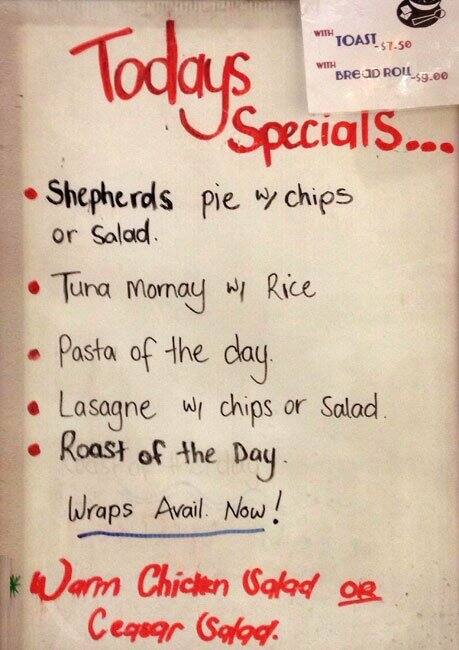 WITH TOAST -$7.50
WITH BREAD ROLL -$9.00
Todays
Specials...
• Shepherds pie w/ chips
or Salad.
• Tuna Mornay w/ Rice
• Pasta of the day.
• Lasagne w/ chips or Salad.
• Roast of the Day.
Wraps Avail. Now!
* Warm Chicken Salad OR
Ceasar Salad.